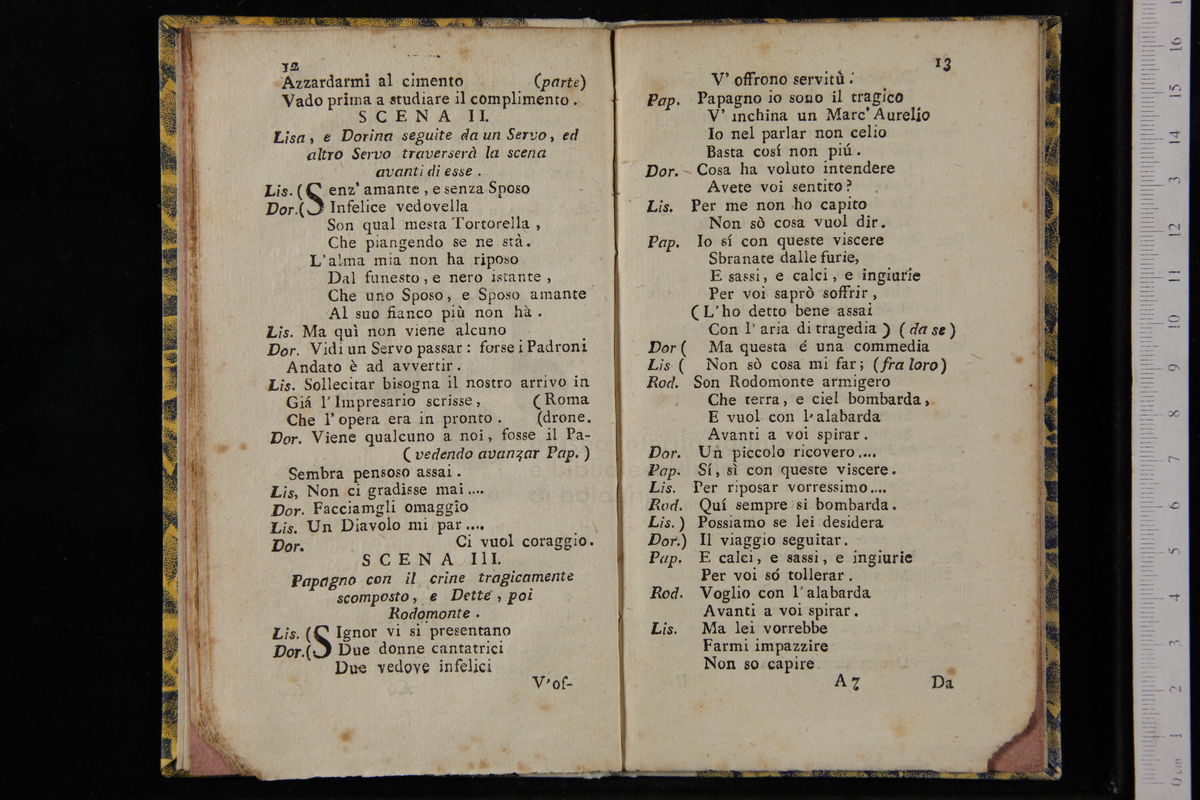 12
Azzardarmi al cimento (parte)
Vado prima a studiare il complimento.
SCENA II.
Lisa, e Dorina seguite da un Servo, ed
altro Servo traverserà la scena
avanti di esse.
Lis. (Senz' amante, e senza Sposo
Dor.( Infelice vedovella
Son qual mesta Tortorella,
Che piangendo se ne stà.
L'alma mia non ha riposo
Dal funesto, e nero istante,
Che uno Sposo, e Sposo amante
Al suo fianco più non hà.
Lis. Ma quì non viene alcuno
Dor. Vidi un Servo passar: forse i Padroni
Andato è ad avvertir.
Lis. Sollecitar bisogna il nostro arrivo in
Giá l'Impresario scrisse, (Roma
Che l'opera era in pronto. (drone.
Dor. Viene qualcuno a noi, fosse il Pa-
(vedendo avanzar Pap.)
Sembra pensoso assai.
Lis, Non ci gradisse mai....
Dor. Facciamgli omaggio
Lis. Un Diavolo mi par....
Dor. Ci vuol coraggio.
SCENA III.
Papagno con il crine tragicamente
scomposto, e Dette, poi
Rodomonte.
Lis. (SIgnor vi si presentano
Dor.( Due donne cantatrici
Due vedove infelici
V'of-
13
V' offrono servitù.
Pap. Papagno io sono il tragico
V' inchina un Marc' Aurelio
Io nel parlar non celio
Basta cosí non piú.
Dor. Cosa ha voluto intendere
Avete voi sentito?
Lis. Per me non ho capito
Non sò cosa vuol dir.
Pap. Io sí con queste viscere
Sbranate dalle furie,
E sassi, e calci, e ingiurie
Per voi saprò soffrir,
(L'ho detto bene assai
Con l'aria di tragedia) (da se)
Dor ( Ma questa é una commedia
Lis ( Non sò cosa mi far; (fra loro)
Rod. Son Rodomonte armigero
Che terra, e ciel bombarda,
E vuol con l'alabarda
Avanti a voi spirar.
Dor. Un piccolo ricovero....
Pap. Sí, sì con queste viscere.
Lis. Per riposar vorressimo....
Rod. Quí sempre si bombarda.
Lis.) Possiamo se lei desidera
Dor.) Il viaggio seguitar.
Pap. E calci, e sassi, e ingiurie
Per voi só tollerar.
Rod. Voglio con l'alabarda
Avanti a voi spirar.
Lis. Ma lei vorrebbe
Farmi impazzire
Non so capire
A 7 Da
0 cm 1 2 3 4 5 6 7 8 9 10 11 12 13 14 15 16